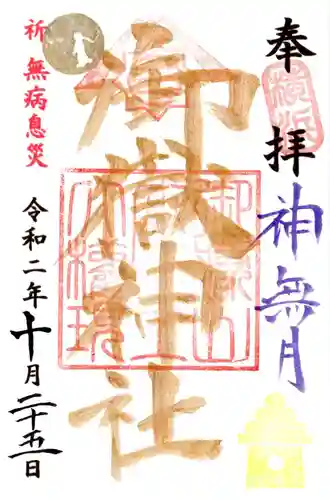 奉拝
横浜
神無月
御嶽神社
祈 無病息災
令和二年十月二十五日